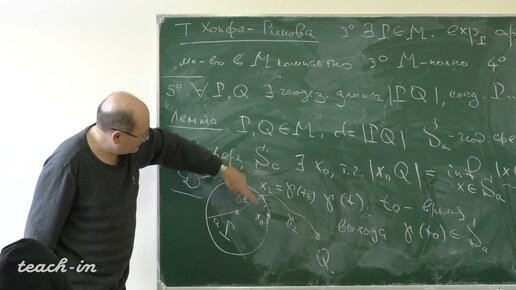 Т. Хопфа-Ринова 3° ∃ P∈M. exp_P
мн-во в M компактно 3° M-полно. 4°
5° ∀ P, Q ∃ геодез. длины |PQ|, соед. P
Лемма P, Q ∈ M, d=|PQ| S_a
S_a ∃ x_0, т.ч. |x_0 Q| = inf x∈S_a
x_2=γ(t_0) γ(t). t_0-время
выхода γ(t_0)∈S_a
P x_0 Q
teach-in